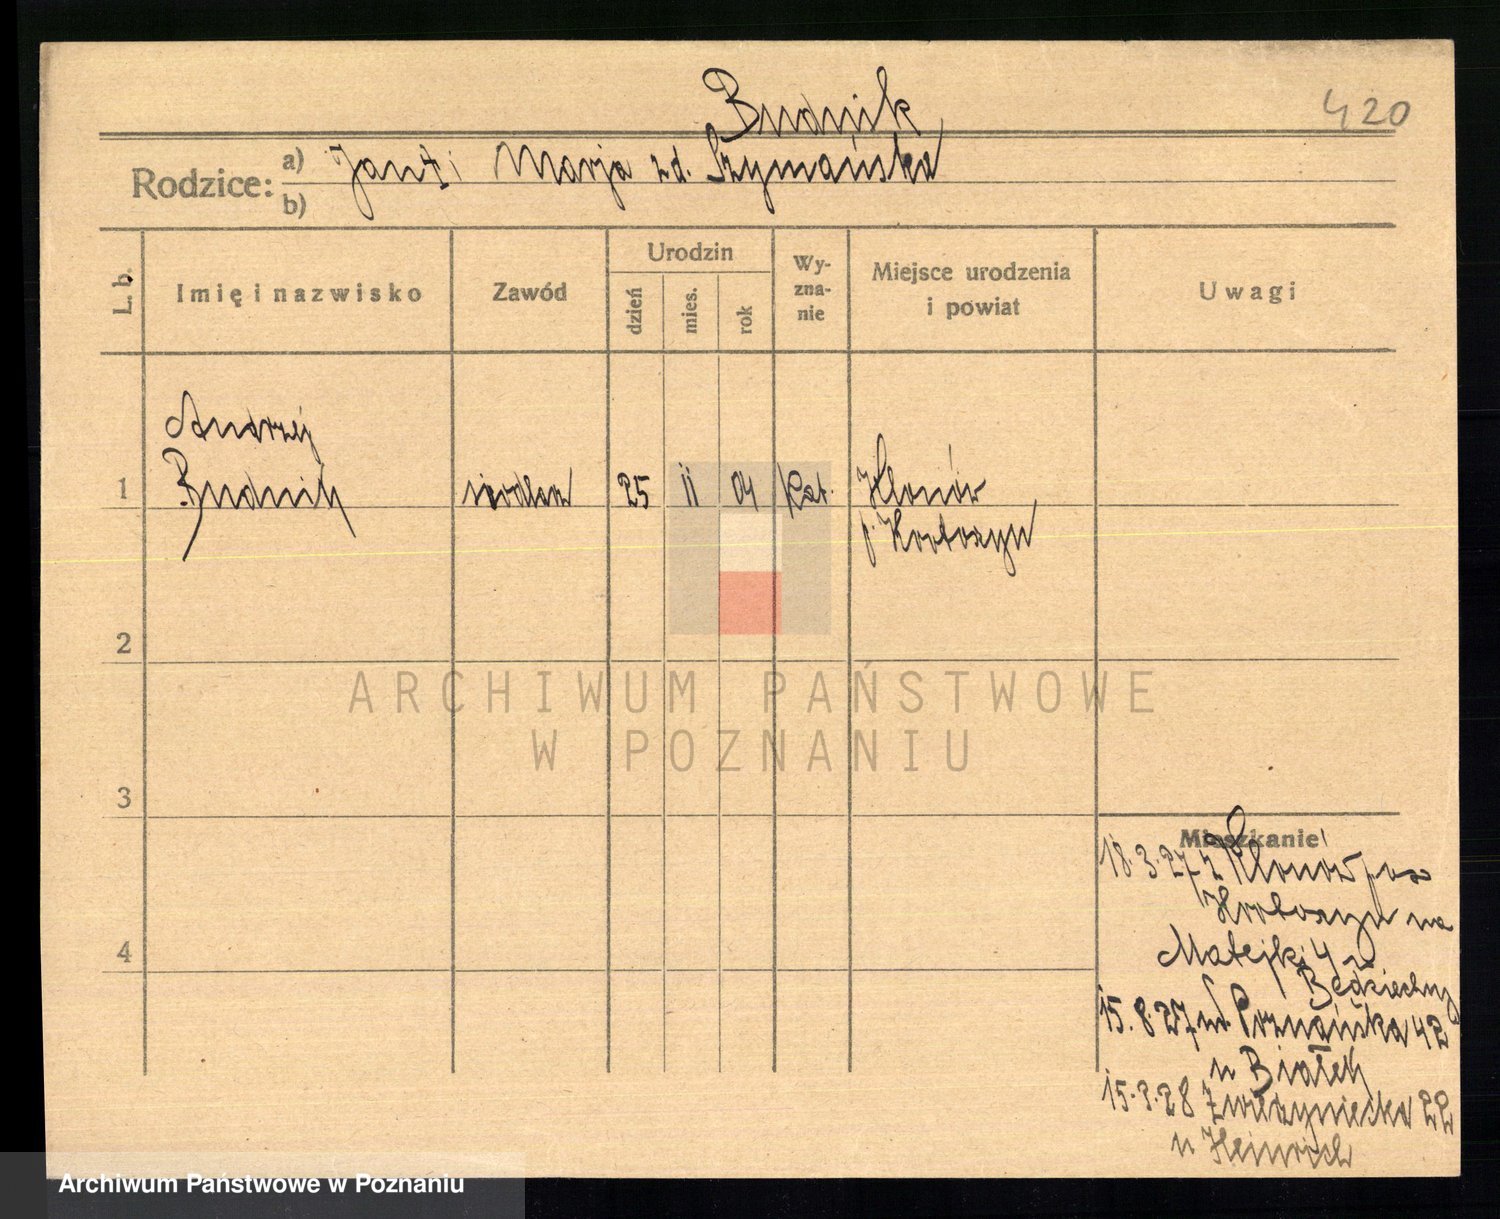 Budnik
420
Rodzice: a) Jan † i Marja zd. Szymańska
b)
L. b.
Imię i nazwisko
Zawód
Urodzin
dzień
mies.
rok
Wy-
zna-
nie
Miejsce urodzenia
i powiat
Uwagi
Andrzej
1 Budnik siodlarz 25 II 04 kat. Klonów
p. Krotoszyn
2
ARCHIWUM PAŃSTWOWE
W POZNANIU
3
Mieszkanie
18.3.27 z Klonów pow
Krotoszyn na
Matejki 4 u
15.8.27 Poznańska 42
u Białek
15.3.28 Zwierzyniecka 22
u Heinrich
4
Archiwum Państwowe w Poznaniu